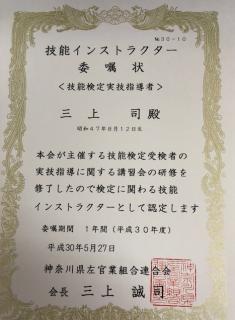 №30-10
技能インストラクター
委嘱状
<技能検定実技指導者>
三上 司殿
昭和47年8月12日生
本会が主催する技能検定受検者の
実技指導に関する講習会の研修を
修了したので検定に関わる技能
インストラクターとして認定します
委嘱期間 1年間(平成30年度)
平成30年5月27日
神奈川県左官業組合連合会
会長 三上誠司